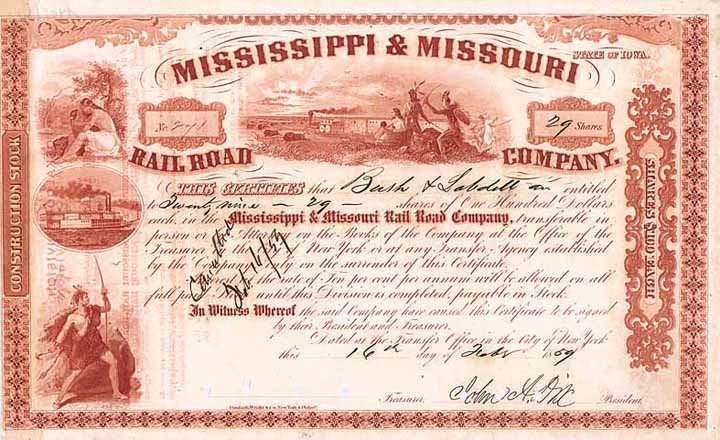 MISSISSIPPI & MISSOURI
STATE OF IOWA.
No.
29 Shares
RAIL ROAD COMPANY.
CONSTRUCTION STOCK
SHARES $100 EACH
THIS CERTIFIES that Bush & Lobdell are entitled
to Twenty nine — 29 — shares of One Hundred Dollars
each, in the Mississippi & Missouri Rail Road Company, transferable in
person or by Attorney on the Books of the Company at the Office of the
Treasurer in the of New York or at any Transfer Agency established
by the Company only on the surrender of this Certificate.
the rate of Ten per cent per annum will be allowed on all
full until this Division is completed, payable in Stock.
In Witness Whereof the said Company have caused this Certificate to be signed
by their President and Treasurer.
Dated at the Transfer Office in the City of New York
this 16th day of Feby 1859
Cancelled
Feb 16/59
Treasurer. John A. Dix President.